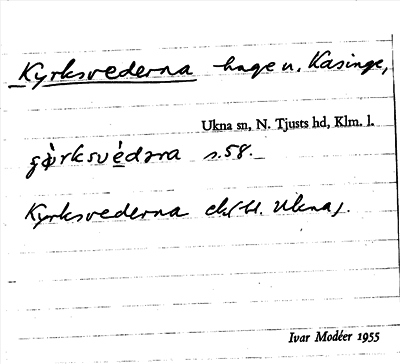 Kyrksvederna hage u. Kasinge,
Ukna sn, N. Tjusts hd, Klm. l.
s.58.
Kyrksvederna ek(bl. Ukna).
Ivar Modéer 1955